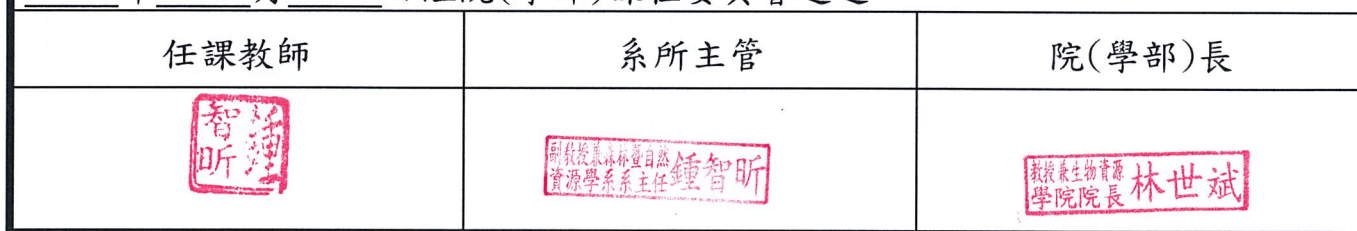 任課教師
系所主管
院(學部)長
鍾智昕
副教授兼森林暨自然
資源學系系主任 鍾智昕
教授兼生物資源
學院院長 林世斌